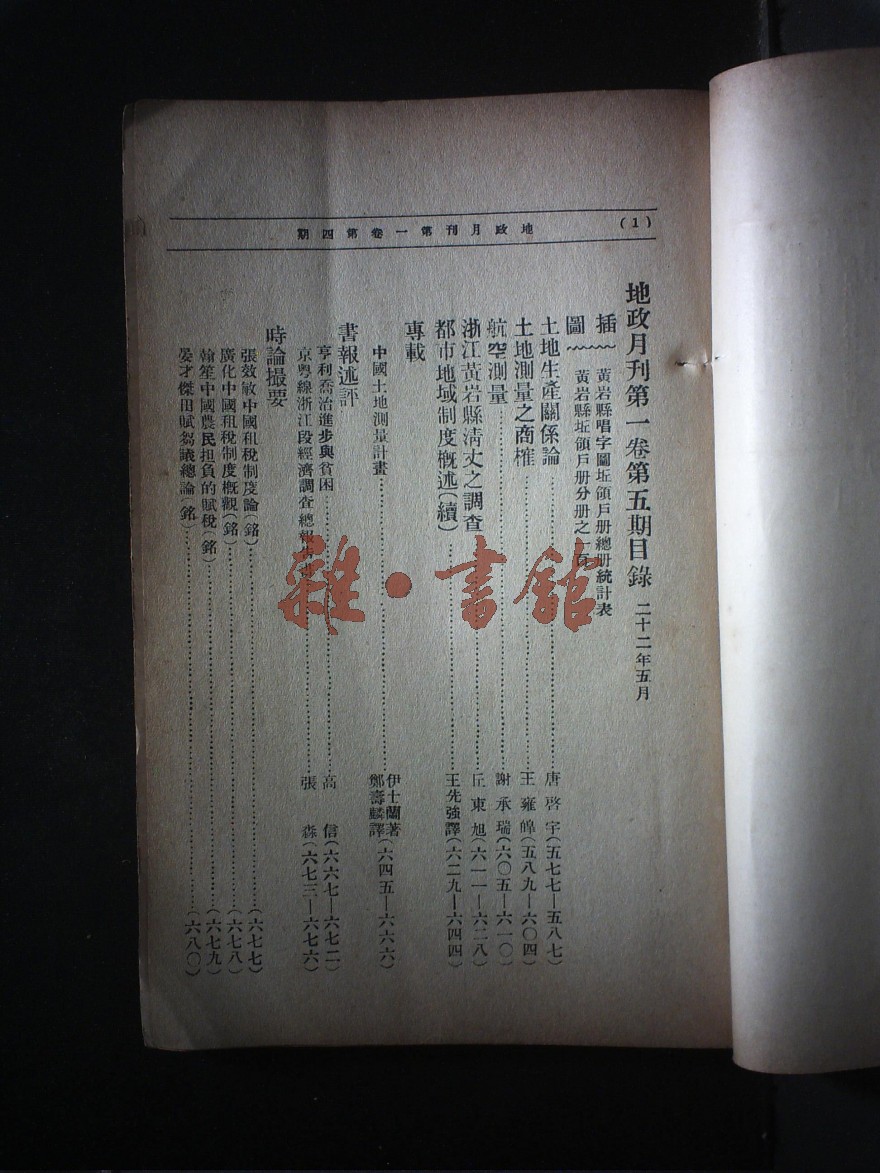 地政月刊第一卷第四期
(1)
地政月刊第一卷第五期目錄 二十二年五月
插圖
黃岩縣唱字圖坵領戶册總册統計表
黃岩縣坵領戶册分册之一頁
土地生產關係論……唐啓宇(五七七—五八七)
土地測量之商榷……王雍皞(五八九—六〇四)
航空測量……謝承瑞(六〇五—六一〇)
浙江黃岩縣淸丈之調查……丘東旭(六一一—六二八)
都市地域制度概述(續)……王先強譯(六二九—六四四)
專載
中國土地測量計畫……伊士蘭著 鄭壽麟譯(六四五—六六六)
書報述評
亨利喬治進步與貧困……高信(六六七—六七二)
京粵線浙江段經濟調查總報告書……張森(六七三—六七六)
時論撮要
張效敏中國租稅制度論(銘)……(六七七)
廣化中國租稅制度槪觀(銘)……(六七八)
翰笙中國農民担負的賦稅(銘)……(六七九)
晏才傑田賦芻議總論(銘)……(六八〇)
雜·書館